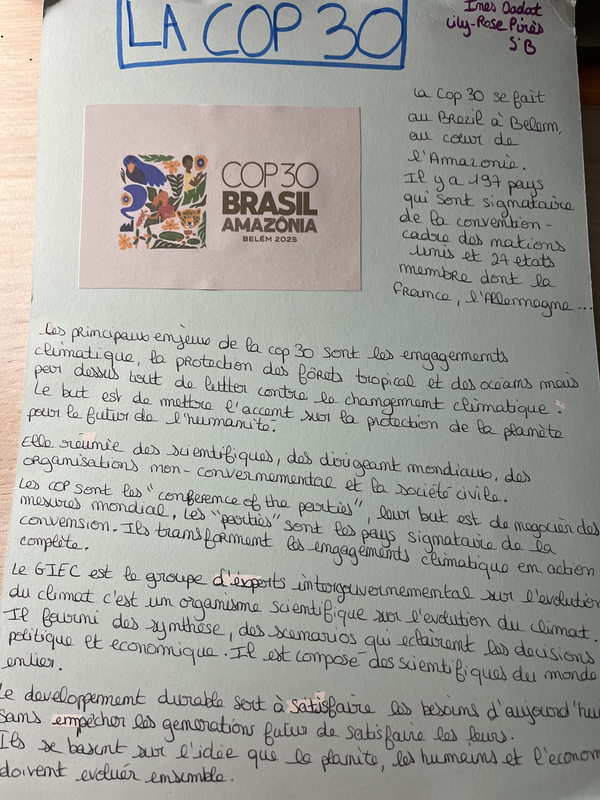 LA COP 30
Ines Dadat
Lily-Rose Pirès
5°B
COP30
BRASIL
AMAZÔNIA
BELÉM 2025
La Cop 30 se fait
au Brezil à Belem,
au cœur de
l'Amazonie.
Il y a 197 pays
qui sont signataire
de la convention-
cadre des nations
unis et 27 etats
membre dont la
France, l'Allemagne...
Les principaux enjeux de la cop 30 sont les engagements
climatique, la protection des fôrets tropical et des océans mais
par dessus tout de lutter contre le changement climatique.
Le but est de mettre l'accent sur la protection de la planète
pour le futur de l'humanité.
Elle réunie des scientifiques, des dirigeant mondiaux, des
organisations non-convernemental et la société civile.
Les COP sont les "conference of the parties", leur but est de negocier des
mesures mondial, les "parties" sont les pays signataire de la
convension. Ils transforment les engagements climatique en action
complète.
Le GIEC est le groupe d'experts intergouvernemental sur l'evolution
du climat c'est un organisme scientifique sur l'evolution du climat.
Il fourni des synthèse, des scenarios qui eclairent les décisions
politique et economique. Il est composé des scientifiques du monde
entier.
Le developpement durable sert à satisfaire les besoins d'aujourd'hui
sans empêcher les generations futur de satisfaire les leurs.
Ils se basent sur l'idée que la planète, les humains et l'econom
doivent evoluer ensemble.